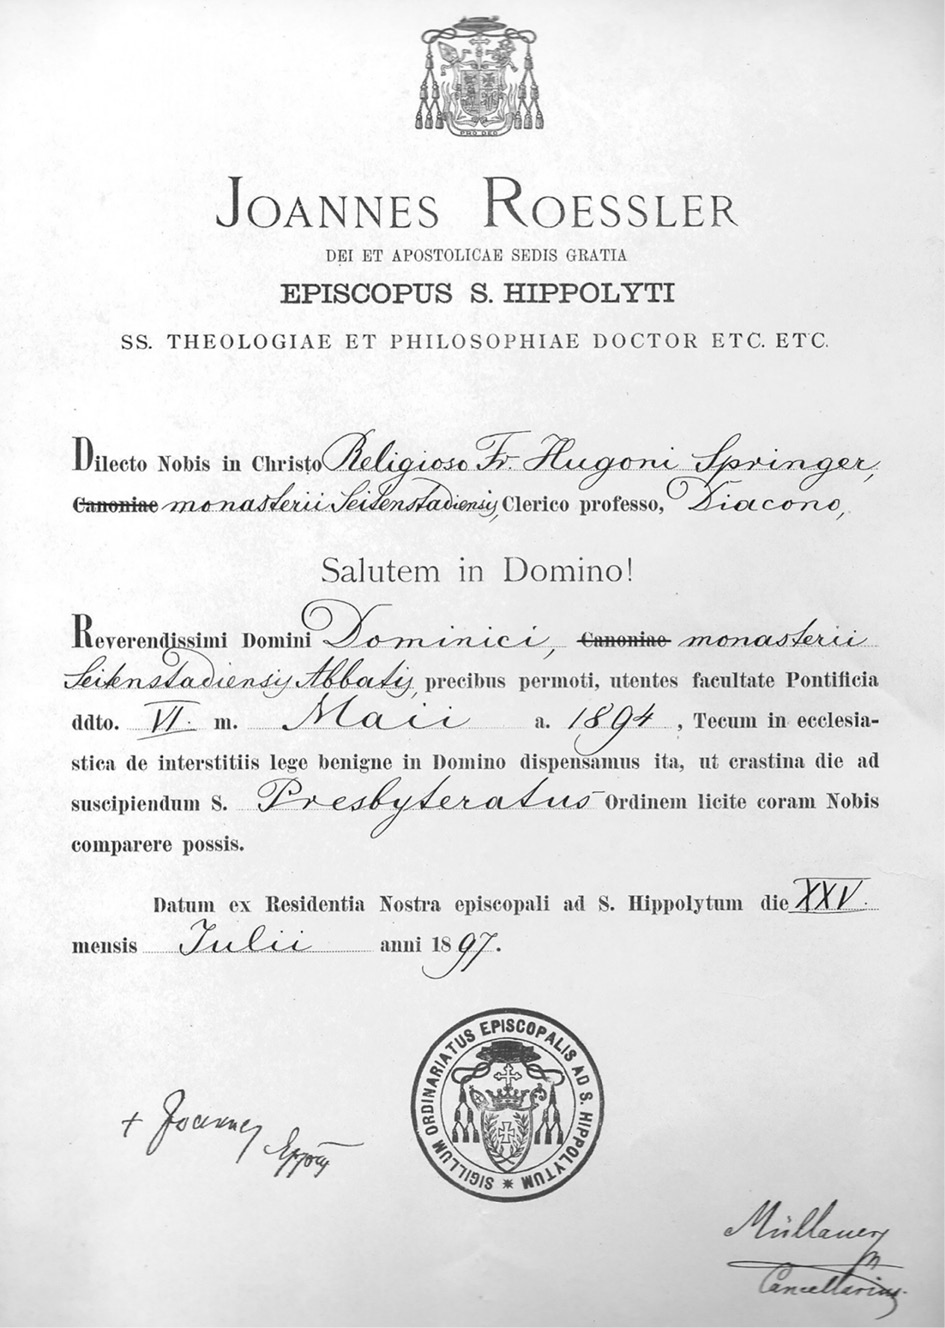 PRO DEO
JOANNES ROESSLER
DEI ET APOSTOLICAE SEDIS GRATIA
EPISCOPUS S. HIPPOLYTI
SS. THEOLOGIAE ET PHILOSOPHIAE DOCTOR ETC. ETC.
Dilecto Nobis in Christo Religioso Fr. Hugoni Springer,
Canoniae monasterii Seitenstadiensis, Clerico professo, Diacono,
Salutem in Domino!
Reverendissimi Domini Dominici, Canoniae monasterii
Seitenstadiensis Abbatis, precibus permoti, utentes facultate Pontificia
ddto. VI. m. Maii a. 1894, Tecum in ecclesia-
stica de interstitiis lege benigne in Domino dispensamus ita, ut crastina die ad
suscipiendum S. Presbyteratus Ordinem licite coram Nobis
comparere possis.
Datum ex Residentia Nostra episcopali ad S. Hippolytum die XXV.
mensis Iulii anni 1897.
SIGILLUM ORDINARIATUS EPISCOPALIS AD S. HIPPOLYTUM
+ Joannes
Müllauer
Cancellarius.